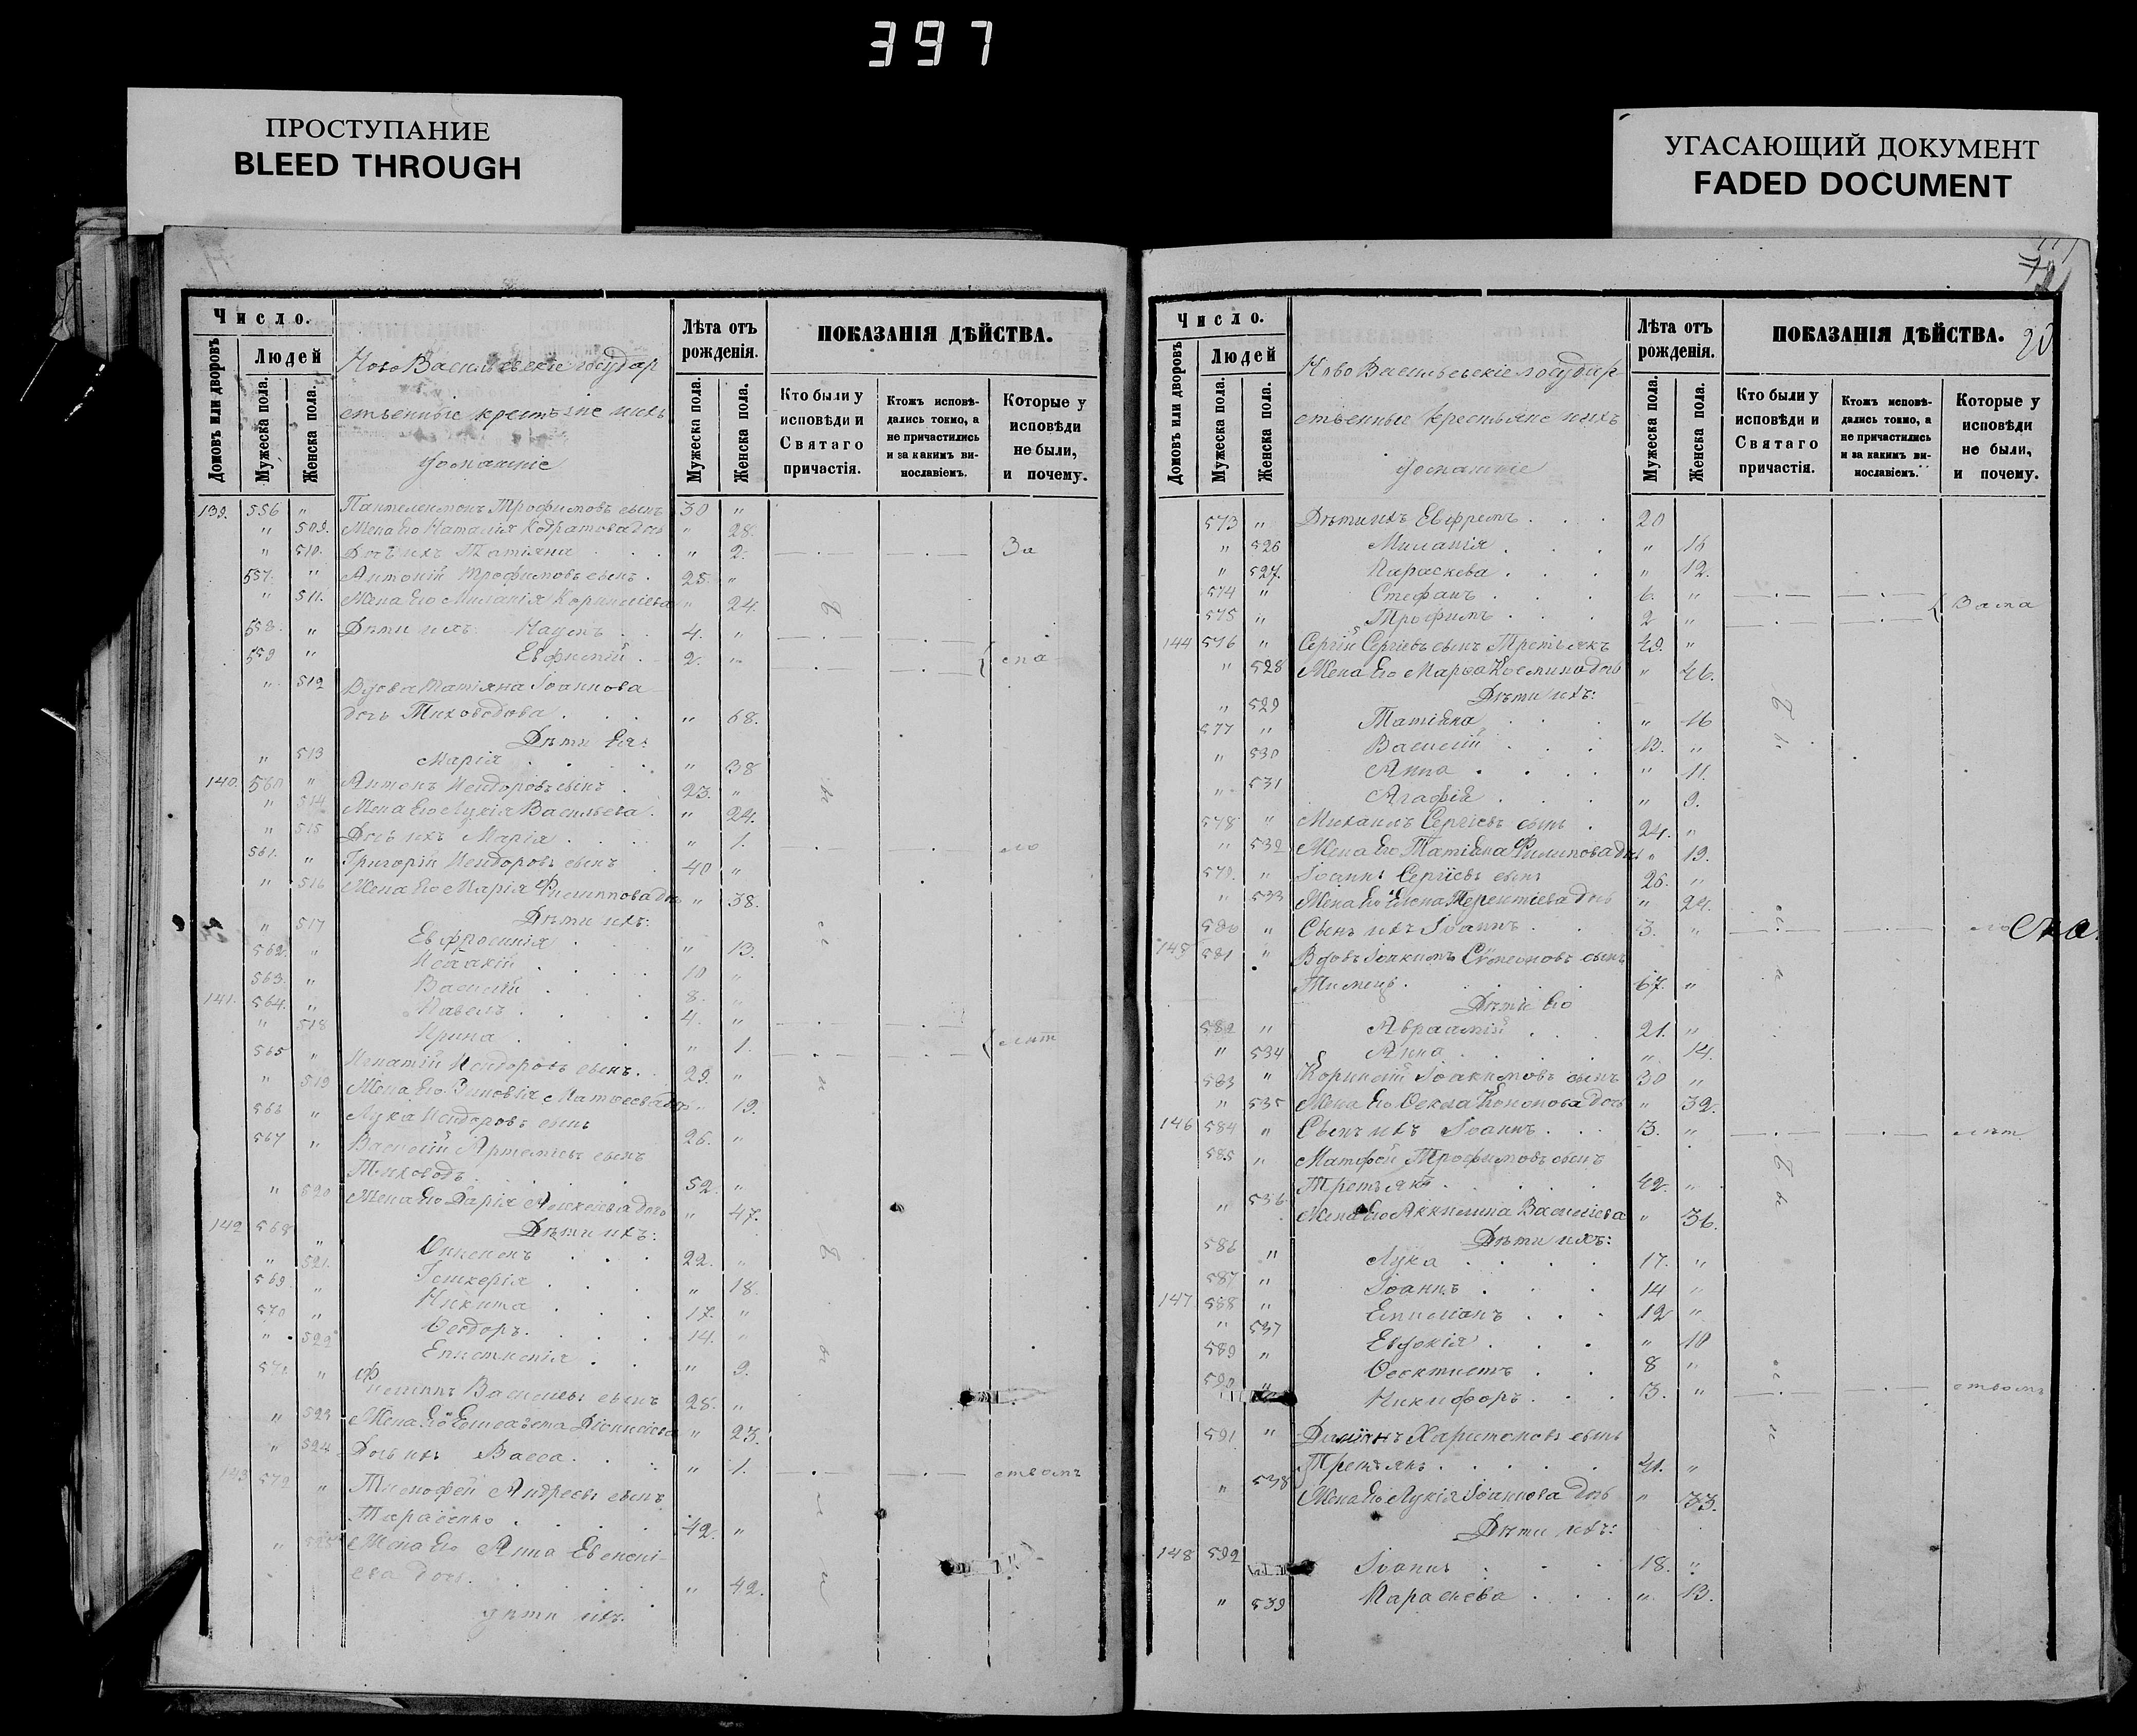 397
ПРОСТУПАНИЕ
BLEED THROUGH
УГАСАЮЩИЙ ДОКУМЕНТ
FADED DOCUMENT
Число.
Людей
Домовъ или дворовъ
Мужеска пола.
Женска пола.
Ново Васильевскіе государ
ственные крестьяне и ихъ
домашніе
Лѣта отъ рожденія.
Мужеска пола.
Женска пола.
ПОКАЗАНІЯ ДѢЙСТВА.
Кто были у исповѣди и Святаго причастія.
Ктожъ исповѣдались токмо, а не причастились и за какимъ винославіемъ.
Которые у исповѣди не были, и почему.
139. 556 " Пантелеимонъ Трофимовъ сынъ 30 "
" 509. Жена его Наталія Кодратова дочь " 28.
" 510. Дочь ихъ Татіяна " 2. За
557. " Антоній Трофимовъ сынъ. 25. "
" 511. Жена его Миланія Корниліева " 24.
558. " Дѣти ихъ: Наумъ 4. "
559 " Евфимій 2. "
" 512 Вдова Татіяна Іоаннова
дочь Тиховодова " 68.
Дѣти ея:
" 513 Марія " 38
140. 560 " Антонъ Исидоровъ сынъ 23. "
" 514 Жена его Лукія Васильева. " 24.
" 515 Дочь ихъ Марія " 1. ло
561. " Григорій Исидоровъ сынъ 40 "
" 516 Жена его Марія Филиппова дочь " 38.
Дѣти ихъ:
" 517 Евфросинія " 13.
562. " Исаакій 10 "
563. " Василій 8. "
141. 564. " Павелъ 4. "
" 518 Ирина " 1.
565 " Игнатій Исидоровъ сынъ. 29. "
" 519 Жена его Зиновія Матѳеева дочь " 19.
566 " Лука Исидоровъ сынъ 26. "
567 " Василій Артемьевъ сынъ
Тиховодъ 52. "
" 520 Жена его Дарія Алексѣева дочь " 47.
Дѣти ихъ:
142 568 " 22. "
" 521. Гликерія " 18.
569. " Никита 17. "
570 " Ѳеодоръ. 14. "
" 522 Епистимія " 9.
571 " Филиппъ Васильевъ сынъ 28. "
" 523 Жена его Елисавета Діонисіева " 23.
" 524 Дочь ихъ Васса. " 1. ствомъ
143 572 " Тимофей Андреевъ сынъ
Тарасенко 42. "
" 525 Жена его Анна Евмені-
ева дочь. " 42.
Дѣти ихъ.
20
Число.
Людей
Домовъ или дворовъ
Мужеска пола.
Женска пола.
Ново Васильевскіе государ
ственные крестьяне и ихъ
домашніе
Лѣта отъ рожденія.
Мужеска пола.
Женска пола.
ПОКАЗАНІЯ ДѢЙСТВА.
Кто были у исповѣди и Святаго причастія.
Ктожъ исповѣдались токмо, а не причастились и за какимъ винославіемъ.
Которые у исповѣди не были, и почему.
573 " Дѣти ихъ Евфремъ 20
" 526 Миланія " 16
" 527. Параскева " 12.
574 " Стефанъ 6. "
575 " Трофимъ 2 "
144 576 " Сергій Сергіевъ сынъ Третьякъ 49. "
" 528 Жена его Марѳа Космина дочь " 46.
Дѣти ихъ:
" 529 Татіяна " 16
577 " Василій 13. "
" 530 Анна " 11.
" 531 Агафія " 9.
578 " Михаилъ Сергіевъ сынъ 24. "
" 532 Жена его Татіяна Филипова дочь " 19.
579. " Іоаннъ Сергіевъ сынъ 26. "
" 533 Жена его Елена Терентіева дочь " 24.
580 " Сынъ ихъ Іоаннъ 3. "
145 581 " Вдовъ Іоакимъ Симеоновъ сынъ
67. "
Дѣти его
582 " Авраамій 21. "
" 534 Анна " 14.
583 " Корнилій Іоакимовъ сынъ 30 "
" 535 Жена его Ѳекла Кононова дочь " 32.
146 584 " Сынъ ихъ Іоаннъ 3. " лѣт
585 " Матфей Трофимовъ сынъ
Третьякъ 42. "
" 536 Жена его Акилина Василіева " 36.
Дѣти ихъ:
586 " Лука 17. "
587 " Іоаннъ 14 "
147. 588 " Емиліанъ 12 "
" 537 Евдокія " 10
589 " Ѳеоктистъ 8 "
590 " Никифоръ 3. " ствомъ
591 " Даміянъ Харитоновъ сынъ
Третьякъ 41. "
" 538 Жена его Лукія Іоаннова дочь " 33.
Дѣти ихъ:
148 592 Іоаннъ 18. "
" 539 Параскева " 13.